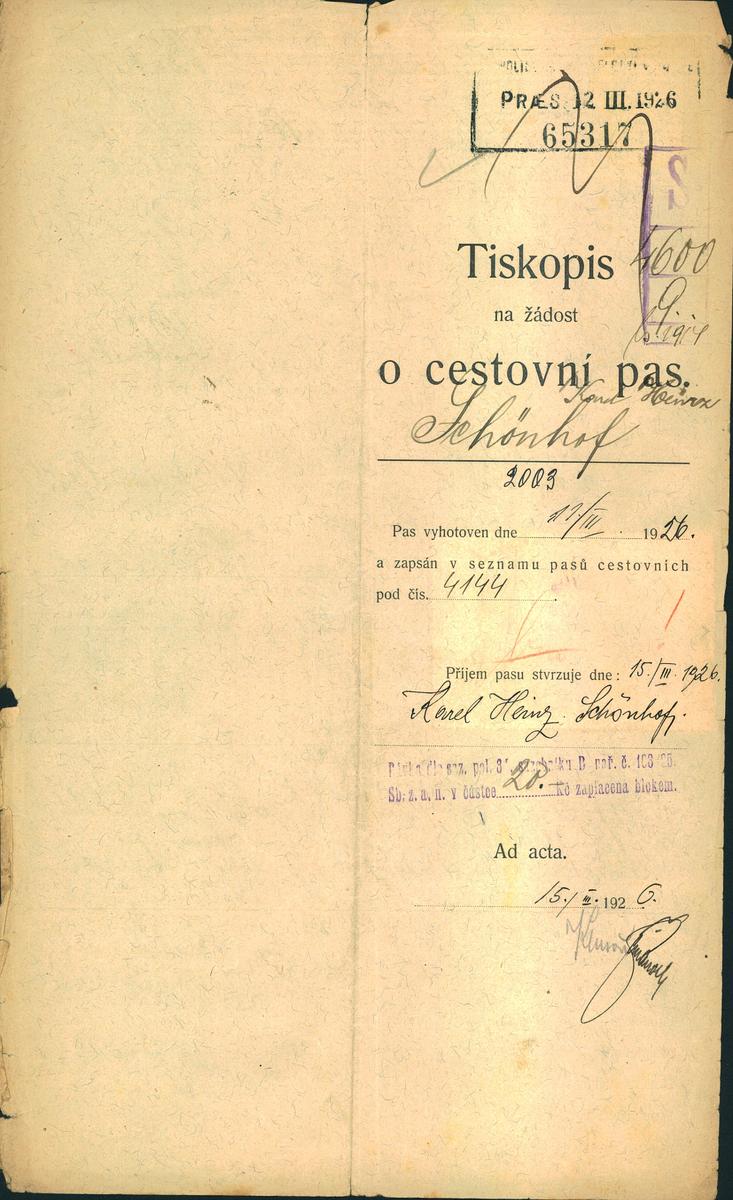 PRÆS. 12 III. 1926
65317
S
Tiskopis
4600
na žádost
o cestovní pas.
Karel Heinz
Schönhof
2003
Pas vyhotoven dne 11/III. 1926.
a zapsán v seznamu pasů cestovních
pod čís. 4144.
Příjem pasu stvrzuje dne: 15./III. 1926.
Karel Heinz Schönhof.
Sb. z. a. n. v částce 20.— Kč zaplacena blokem.
Ad acta.
15./III. 1926.